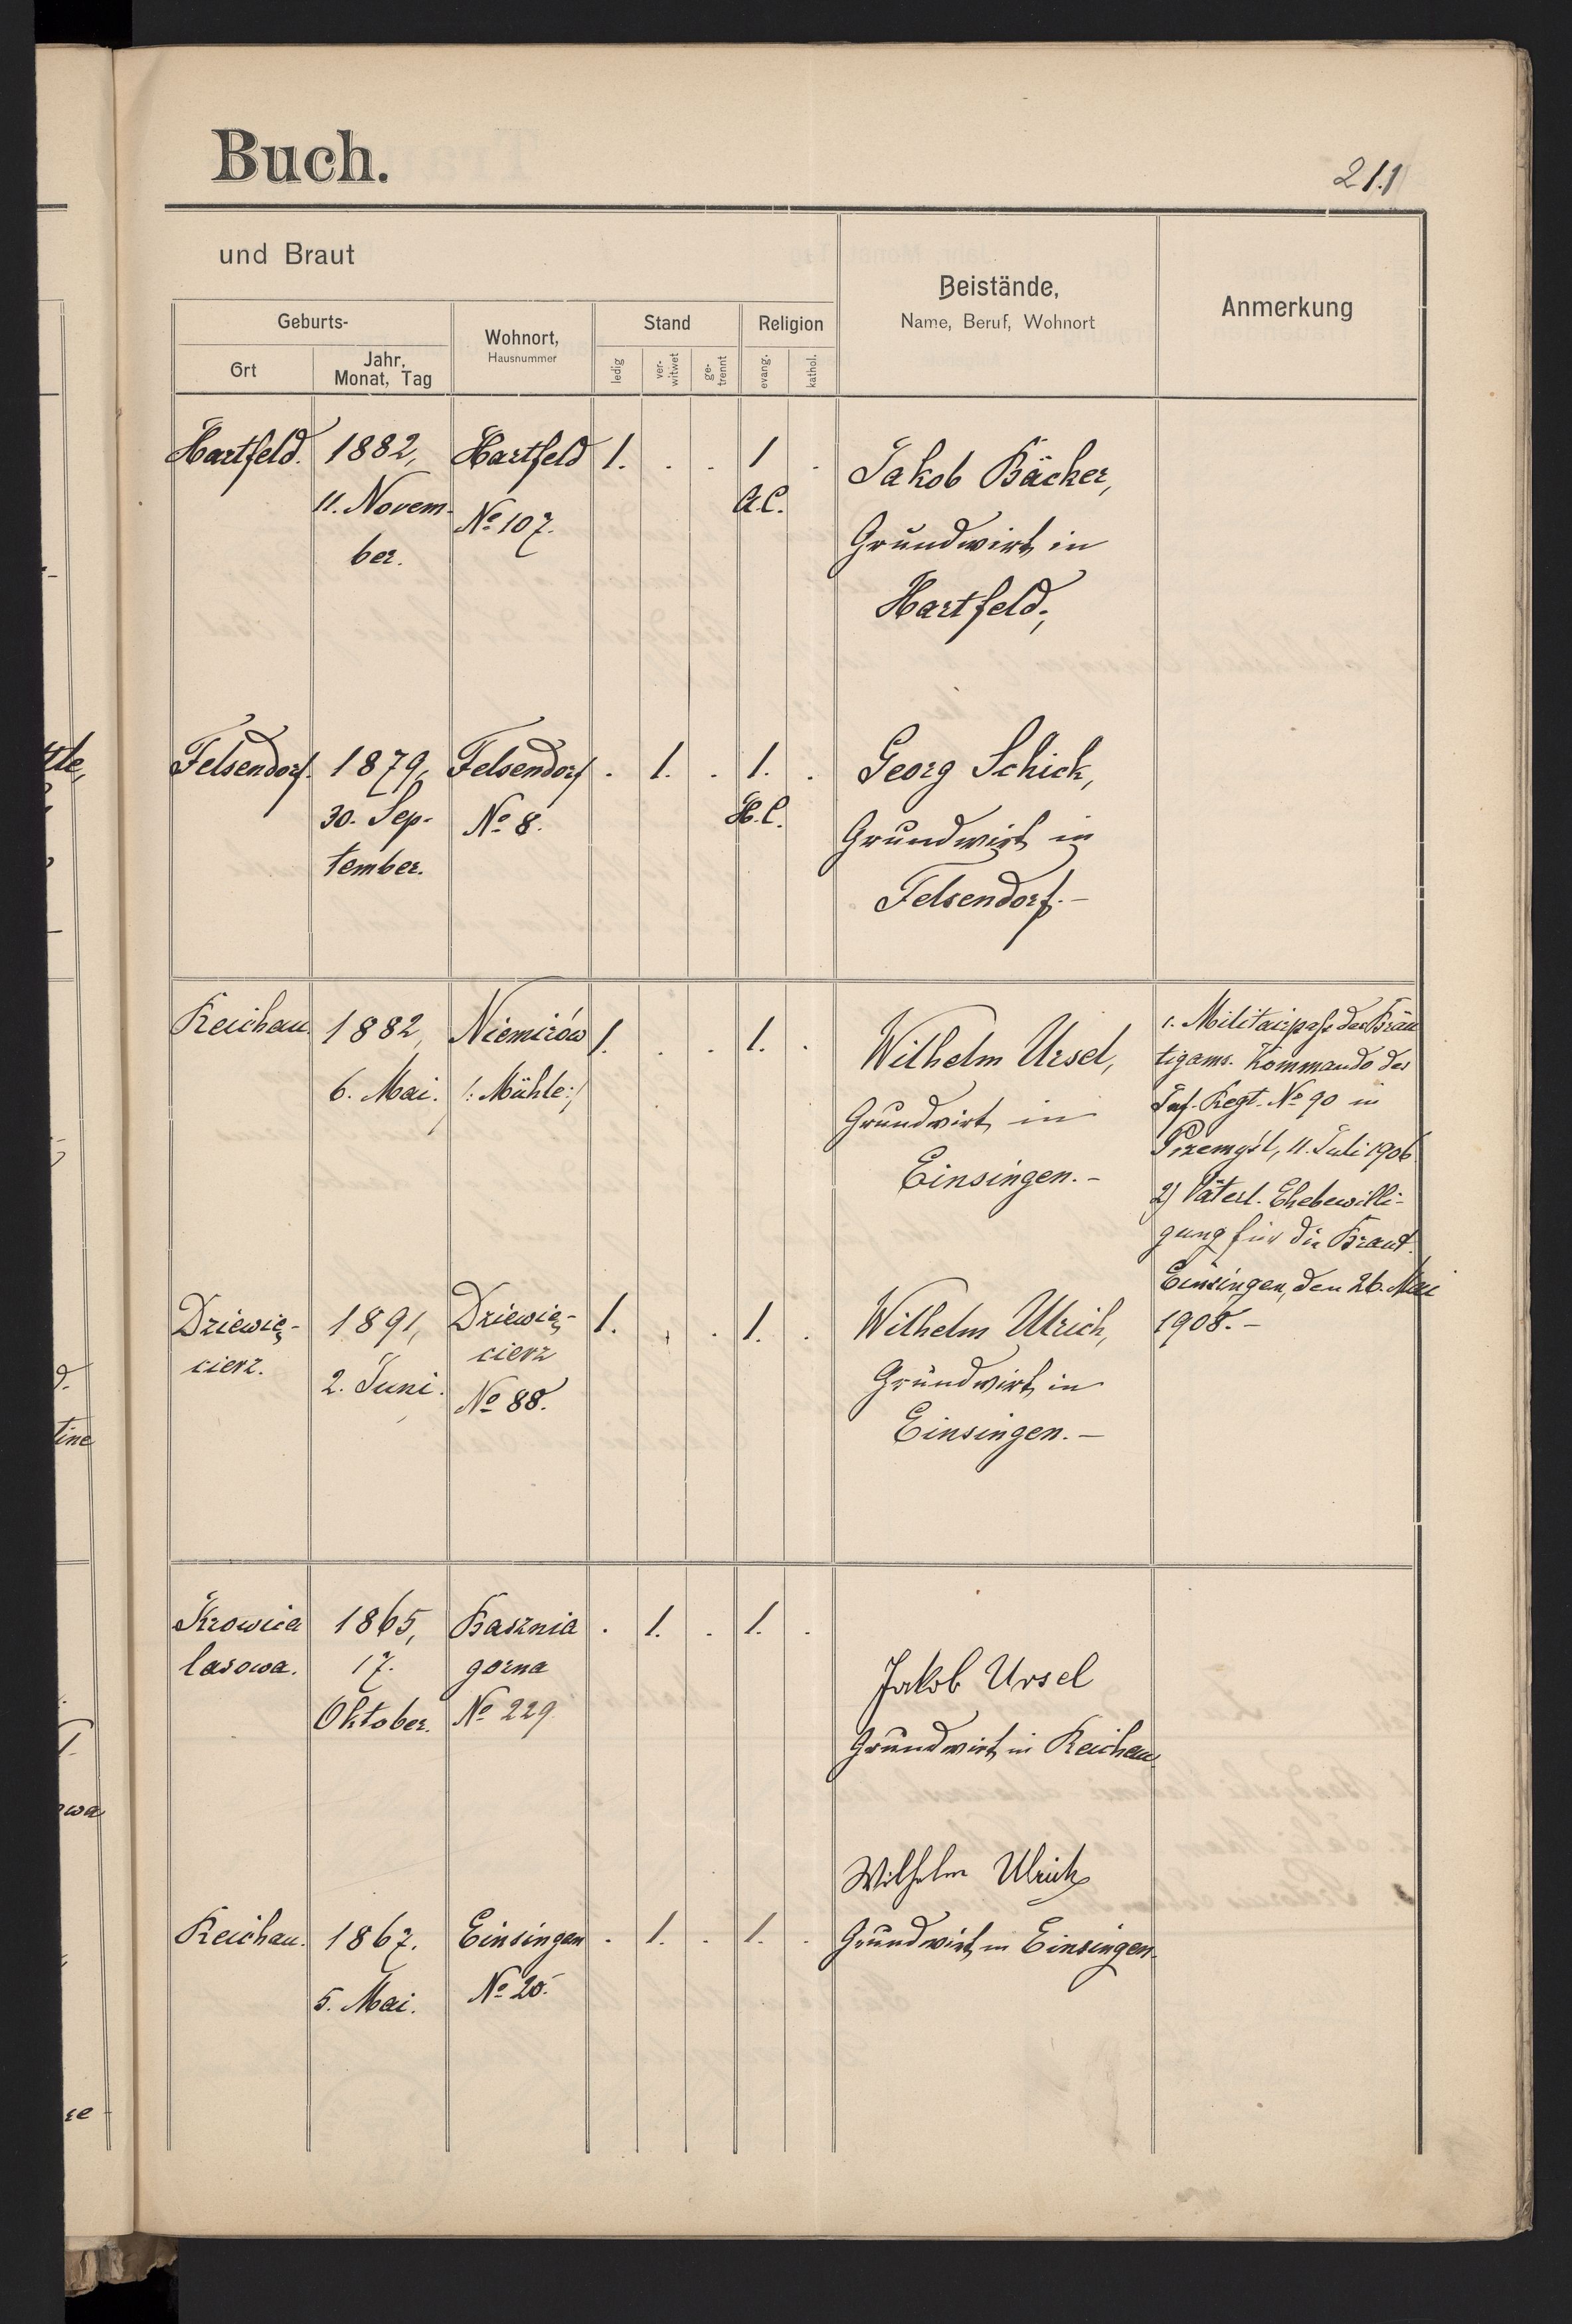 Buch.
211
und Braut
Geburts-
Ort
Jahr,
Monat, Tag
Wohnort,
Hausnummer
Stand
ledig
ver-
witwet
ge-
trennt
Religion
evang.
kathol.
Beistände,
Name, Beruf, Wohnort
Anmerkung
Hartfeld. 1882, Hartfeld 1. . . 1 .
11. Novem- No 107. A.C.
ber.
Jakob Bäcker,
Grundwirt in
Hartfeld,
Felsendorf. 1879, Felsendorf . 1. . 1. .
30. Sep- No 8. H.C.
tember.
Georg Schick,
Grundwirt in
Felsendorf.-
Reichau. 1882, Niemirów 1. . . 1. .
6. Mai. /: Mühle:/
Wilhelm Ursel,
Grundwirt in
Einsingen.-
1. Militairpass des Bräu
tigams. Kommando des
Inf. Regt. No 90 in
Przemyśl, 11. Juli 1906
2) Väterl. Ehebewilli-
gung für die Braut.
Einsingen, den 26. Mai
1908.-
Dziewię- 1891, Dziewię- 1. . . 1. .
cierz. 2. Juni. cierz
No 88.
Wilhelm Ulrich,
Grundwirt in
Einsingen.-
Krowica 1865, Basznia . 1. . 1. .
lasowa. 17. gorna
Oktober. No 229
Jakob Ursel
Grundwirt in Reichau
Wilhelm Ulrich
Reichau. 1867. Einsingen . 1. . 1. . Grundwirt in Einsingen.
5. Mai. No 20.
ttle,
tine
owa